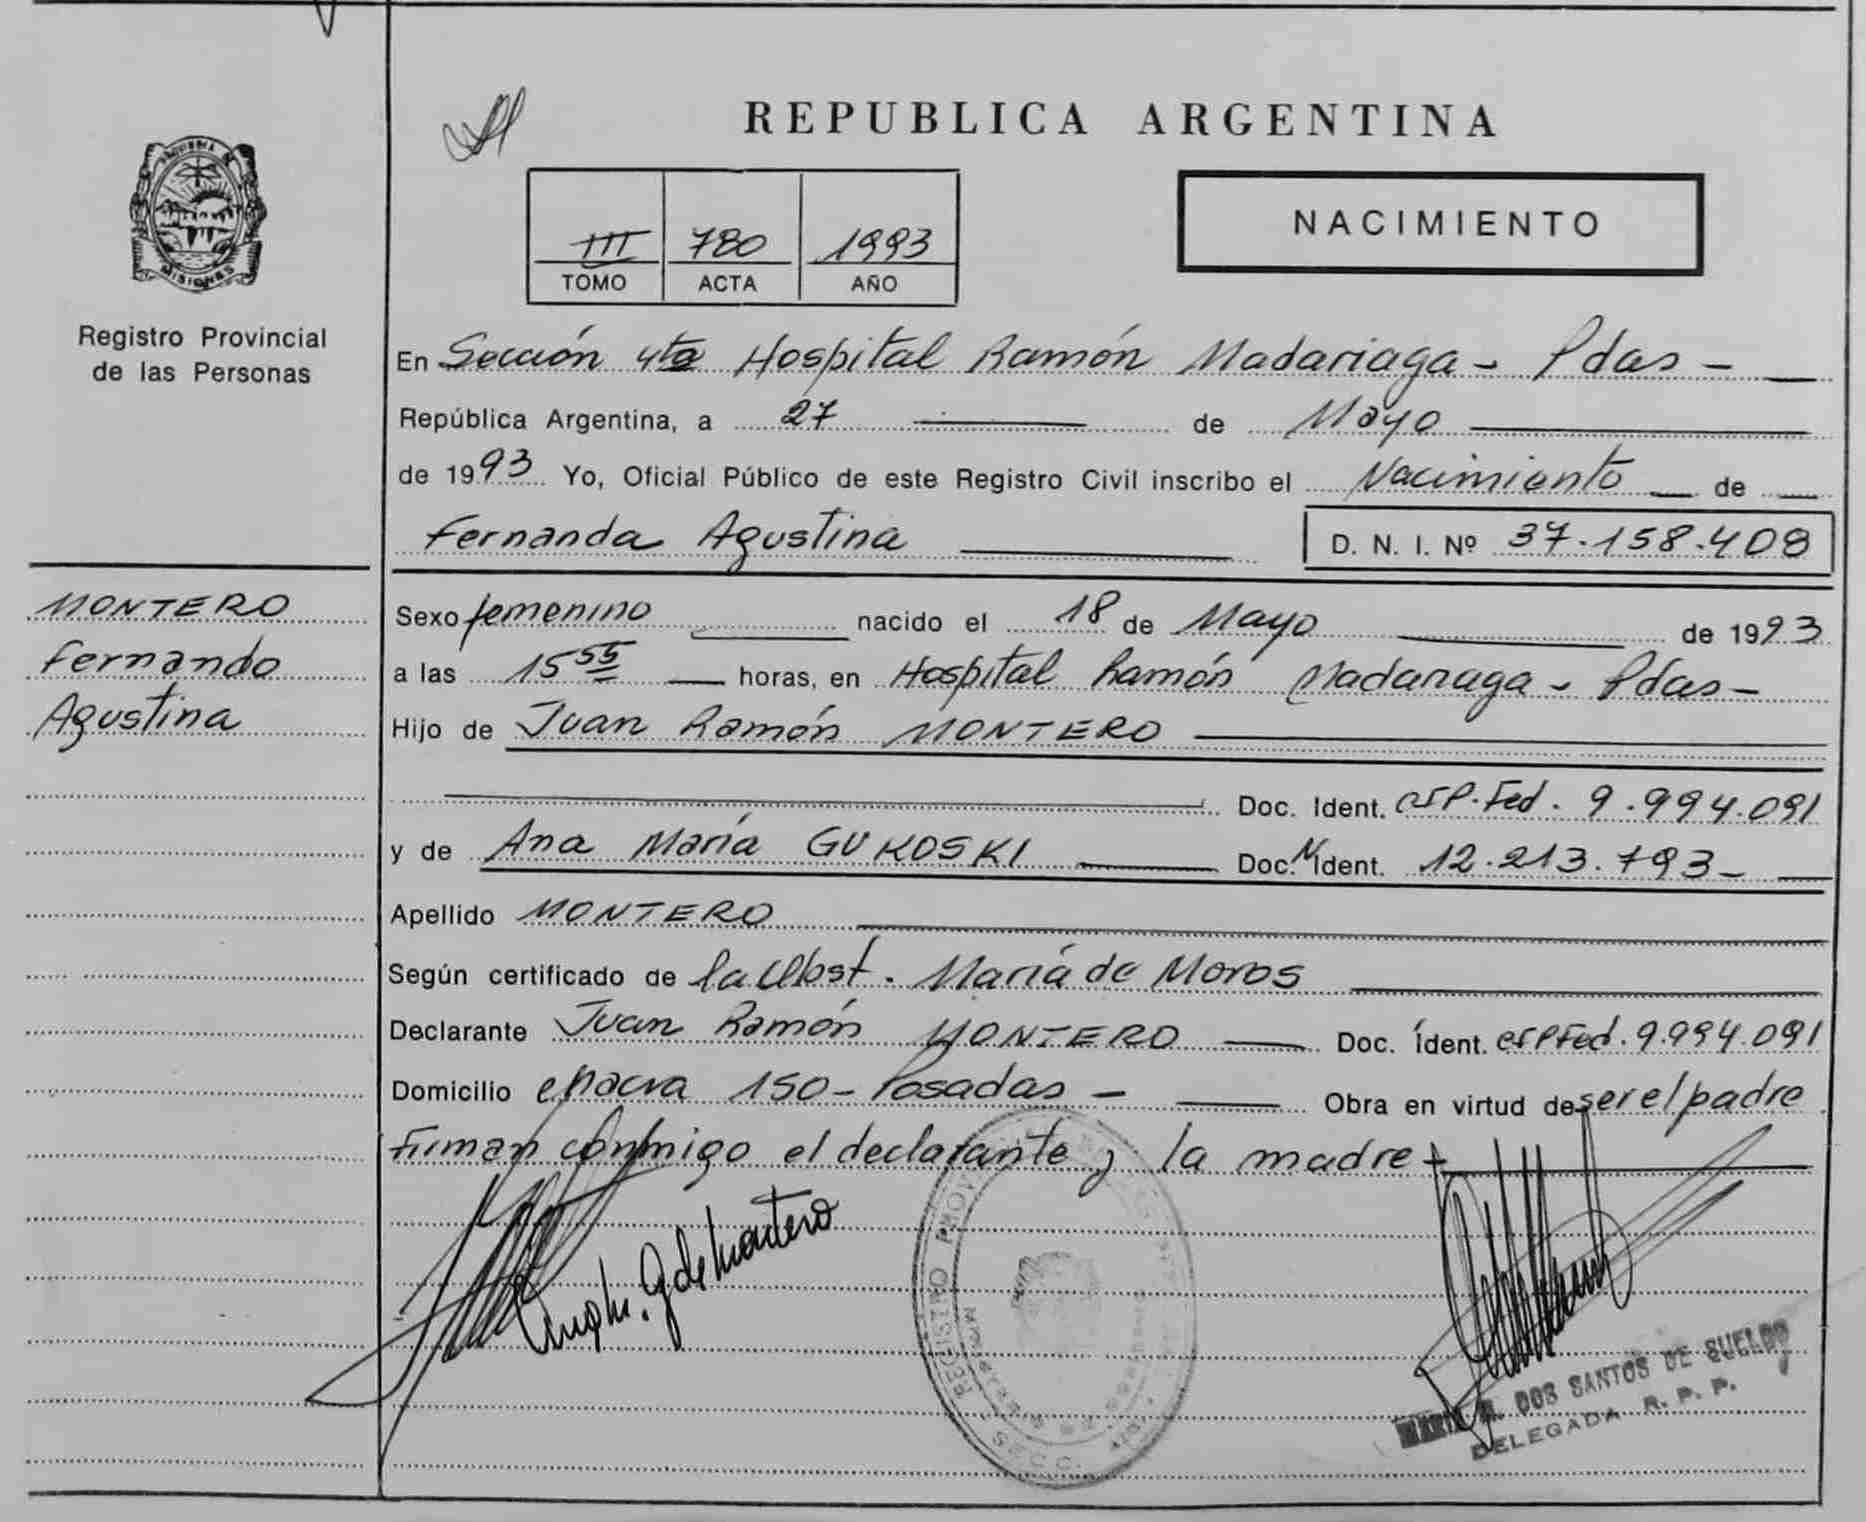 REPUBLICA ARGENTINA
MISIONES
Registro Provincial
de las Personas
III 780 1993
TOMO ACTA AÑO
NACIMIENTO
En Sección 4ta Hospital Ramón Madariaga - Pdas -
República Argentina, a 27 de Mayo
de 1993 Yo, Oficial Público de este Registro Civil inscribo el Nacimiento de
Fernanda Agustina D. N. I. Nº 37.158.408
MONTERO
Fernanda
Agustina
Sexo femenino nacido el 18 de Mayo de 1993
a las 15 55 horas, en Hospital Ramón Madariaga - Pdas -
Hijo de Juan Ramón MONTERO
Doc. Ident. Fed. 9.994.091
y de Ana María GUKOSKI Doc. Ident. 12.213.793 -
Apellido MONTERO
Según certificado de la Obst. María de Moros
Declarante Juan Ramón MONTERO Doc. Ident. Fed. 9.994.091
Domicilio 150 - Posadas - Obra en virtud de ser el padre
Firman conmigo el declarante y la madre
G de Montero
REGISTRO
DOS SANTOS DE SUELDO
DELEGADA R. P. P.